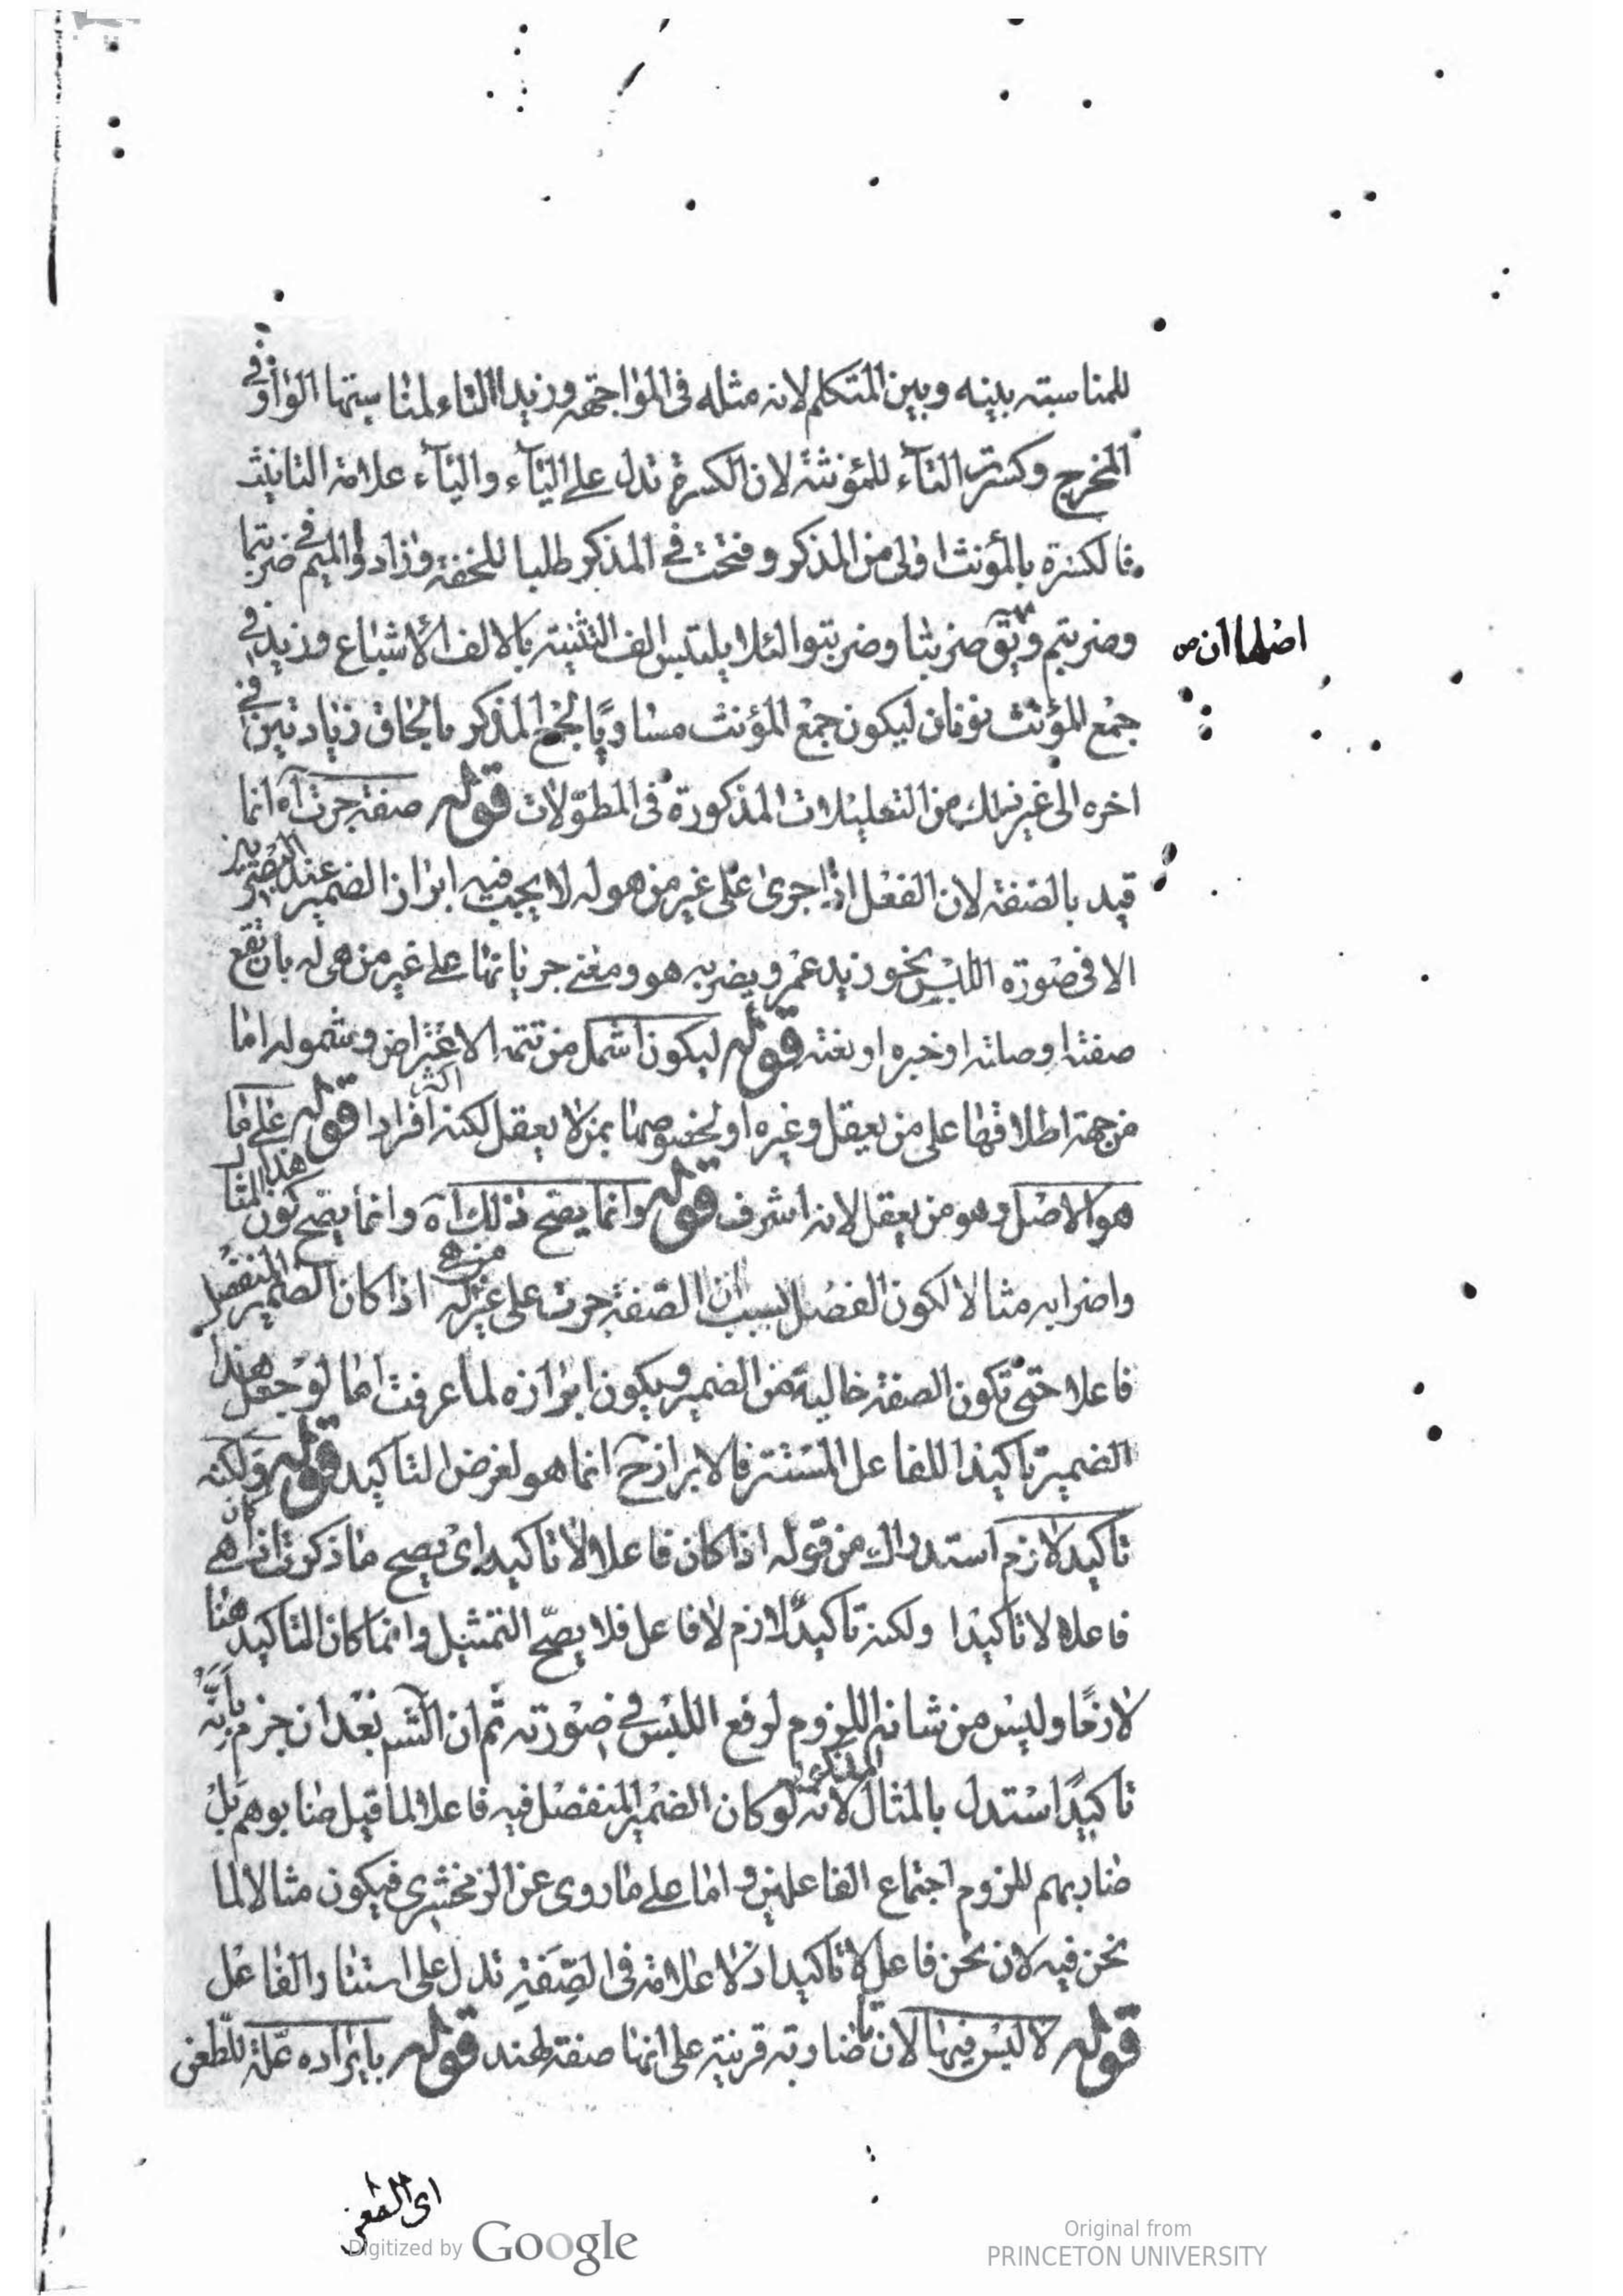 للمناسبته بينه وبين المتكلم لانه مثله فى المواجهه وزيدا التاء لمناسبتها الواو فى
المخرج وكسرت التاء للمؤنثة لان الكسرة تدل على الياء والياء علامة التانيث
فالكسرة بالمؤنث اولى من المذكر وفتحت فى المذكر طلبا للخفة وزادوا الميم فى ضربتما
وضربتم ويق ضربتا وضربتوا لئلا يلتبس الف التثنيته بالالف الاشباع وزيد فى
اصلها ان ص
جمع المؤنث نونان ليكون جمع المؤنث مساويًا لجمع المذكر بالحاق زيادتين فى
اخره الى غير ذلك من التعليلات المذكورة فى المطوّلات قوله صفة جرت آه انما
قيد بالصفة لان الفعل اذا جرى على غير من هو له لا يجب فيه ابراز الضمير عند البصريين
الا فى صورة اللبس نحو زيد عمرو يضربه هو ومعنى جريانها على غير من هى له بان تقع
صفته اوصلته اوخبره اونعته قوله ليكون اشمل من تتمة الاعتراض وشموله اما
من جهة اطلاقها على من يعقل وغيره اولخصوصها بمن لا يعقل لكنه اكثر افرادا قوله على ما
هو الاصل وهو من يعقل لانه اشرف قوله وانما يصح ذلك آه وانما يصح كون هذا المثا
واضرابه مثالا لكون الفصل بسبب ان الصفة جرت على غير من هى له اذا كان الضمير المنفصل
فاعلا حتى تكون الصفة خالية من الضمير ويكون ابرازه لما عرفت اما لو جعل هذا
الضمير تاكيدا للفاعل المستتر فالابراز ح انما هو لغرض التاكيد قوله ولكنه
تاكيد لازم استدراك من قوله اذا كان فاعلا لا تاكيدا اى يصح ما ذكرت ان كان هى
فاعلا لا تاكيدا ولكنه تاكيد لازم لا فاعل فلا يصحّ التمثيل وانما كان التاكيد هنا
لازمًا وليس من شانه اللزوم لرفع اللبس فى صورته ثم ان الش بعد ان جزم بانه
تاكيدًا استدل بالمثال المذكور لانه لو كان الضمير المنفصل فيه فاعلا لما قيل ضاربوهم بل
ضاربهم للزوم اجتماع الفاعلين واما على ما روى عن الزمخشرى فيكون مثالا لما
نحن فيه لان نحن فاعل لا تاكيد اذ لا علامة فى الصّفة تدل على استتار الفاعل
قوله لا لبس فيها لان تا ضاربته قرينة على انها صفة لهند قوله بايراده عّلة للّطعن
اى الطعن
Digitized by Google
Original from
PRINCETON UNIVERSITY